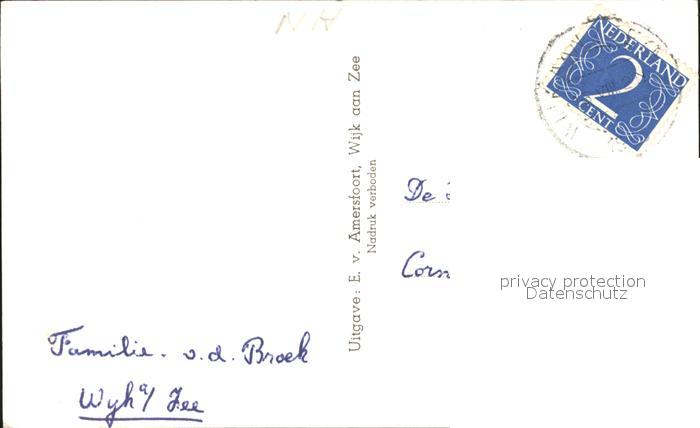 NH
NEDERLAND
2
CENT
Uitgave: E. v. Amersfoort, Wijk aan Zee
Nadruk verboden
De
Corn
privacy protection
Datenschutz
Familie. v.d. Broek
Wyk a/ Zee